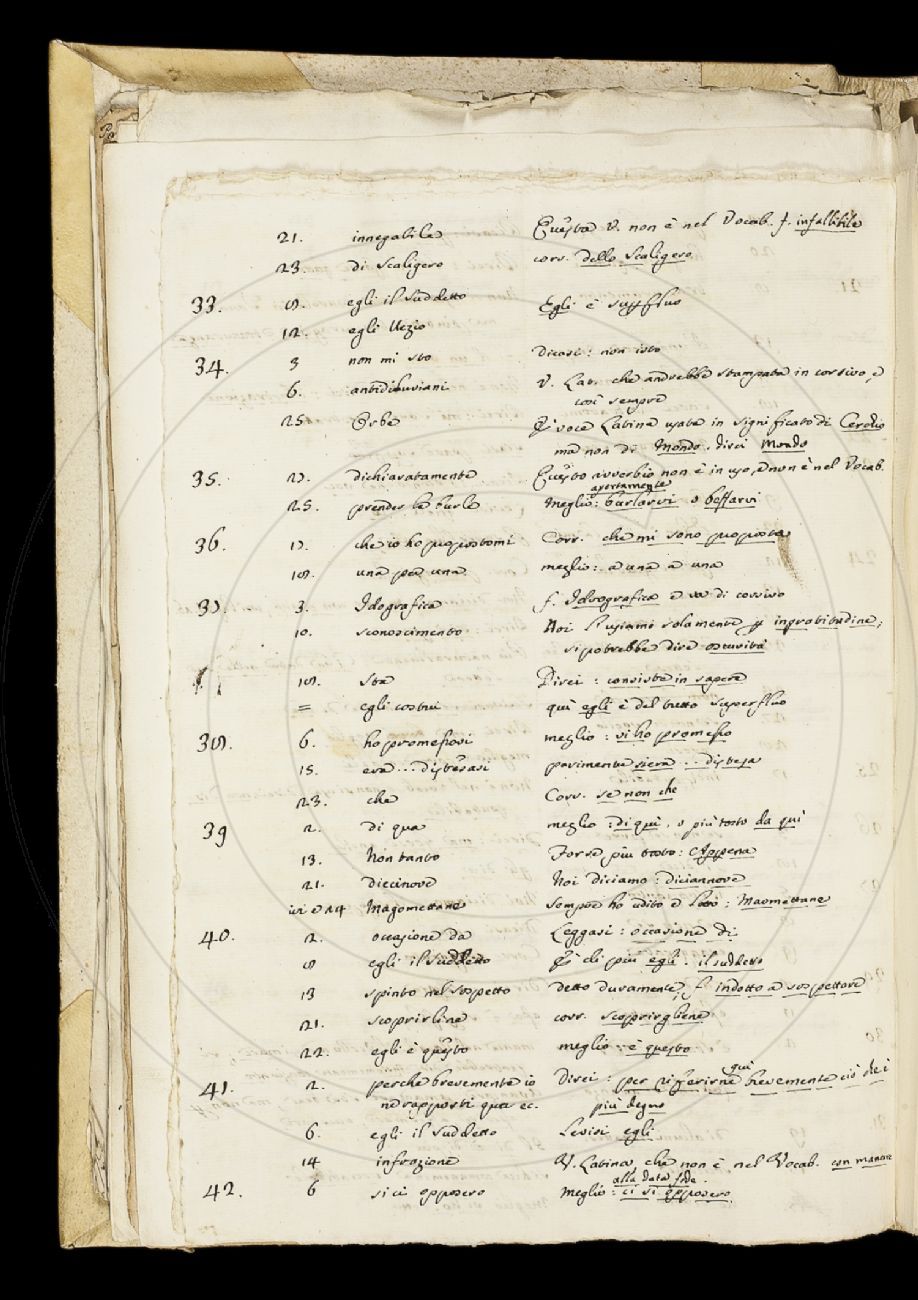 21. innegabile Questa V. non è nel Vocab. f. infallibile
23. di Scaligero corr. dello Scaligero
33. 8. egli il suddetto Egli è suppfluo
12. egli Uezio
34. 3 non mi sto Dicasi: non isto
6. antidiluviani V. Lat. che andrebbe stampata in corsivo, e
così sempre
25 Orbe È voce Latina usata in significato di Cerchio
ma non di Mondo. direi Mondo
35. 7. dichiaratamente Questo avverbio non è in uso, e non è nel Vocab.
apertamente
25. prender la burla Meglio: burlarvi o beffarvi
36. 17. che io ho propostomi Corr. che mi sono proposto
18. una per una meglio: a una a una
37. 3. Idografica f. Idrografica e va di corsivo
10. sconoscimento Noi l'usiamo solamente p ingratitudine;
si potrebbe dire oscurità
18. Sta Direi: consiste in sapere
= egli costui qui egli è del tutto superfluo
38. 6. ho promessovi meglio: vi ho promesso
15. era... distesasi pavimento siera... distesa
23. che Corr. se non che
39 2. di qua meglio: di qui, o più tosto da qui
13. Non tanto Forse più tosto: Appena
21. diecinove Noi diciamo: diciannove
ivi e 24 Magomettane Sempre ho udito e letto: Maomettane
40. 2. occasione da Leggasi: occasione di
8 egli il suddetto È di più egli. il suddetto
13 spinto nel sospetto detto duramente, f. indotto a sospettare
21. scoprirline corr. scoprirgliene
22. egli è questo meglio: è questo
qui
41. 2. perche brevemente io Direi: per riferirne brevemente ciò che è
ne rapporti qua ec. più degno
6. egli il suddetto Levisi egli
14 infrazione V. Latina che non è nel Vocab. con mancar
alla data fede.
42. 6 si ci opposero Meglio: ci si opposero